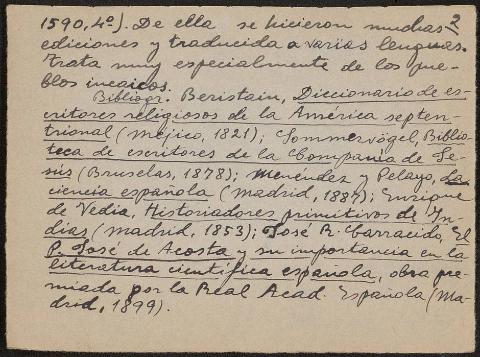 2
1590, 4º). De ella se hicieron muchas
ediciones y traducida a varias lenguas.
Trata muy especialmente de los pue-
blos incaicos.
Bibliogr. Beristain, Diccionario de es-
critores religiosos de la América septen-
trional (Méjico, 1821); Sommervögel, Biblio-
teca de escritores de la Compañía de Je-
sús (Bruselas, 1878); Menéndez y Pelayo, La
ciencia española (Madrid, 1887); Enrique
de Vedia, Historiadores primitivos de In-
dias (Madrid, 1853); José R. Carracido, El
P. José de Acosta y su importancia en la
literatura científica española, obra pre-
miada por la Real Acad. Española (Ma-
drid, 1899).